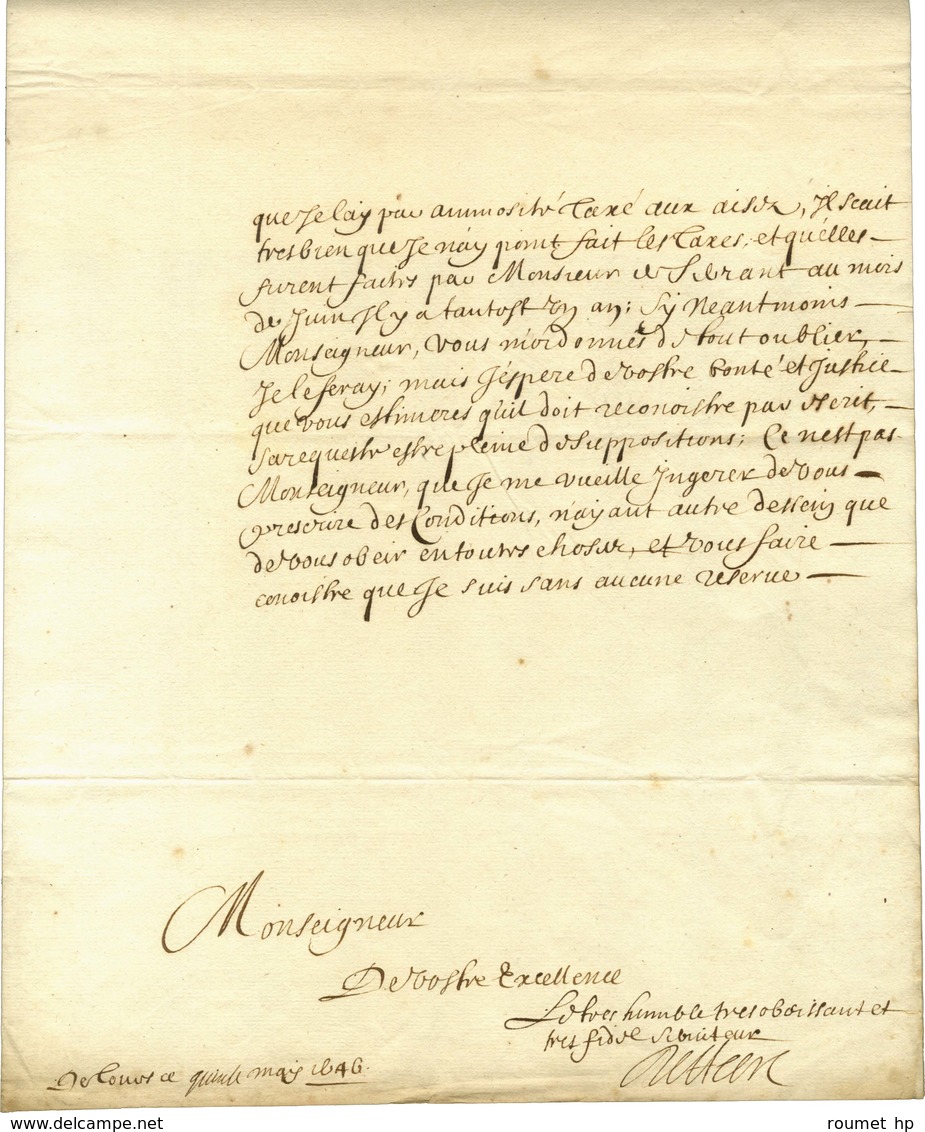 que Je lay par animosité Taxé aux aisez, Il scait
tres bien que Je n'ay point fait les Taxes, et quelles
furent faites par Monsieur de au mois
de Juin Il y a tantost un an; Sy Neantmoins
Monseigneur, vous m'ordonnés de tout oublier,
Je le feray; mais J'espere de vostre bonté et Justice
que vous estimeres quil doit reconoistre par escrit,
sa requeste estre pleine de suppositions; Ce n'est pas
Monseigneur, que Je me vueille Ingerer de vous
prescrire des Conditions, n'ayant autre dessein que
de vous obeir en toutes choses, et vous faire
conoistre que Je suis sans aucune reserve
Monseigneur
De vostre Excellence
Le tres humble tres obeissant et
tres fidel serviteur
De Tours ce quinze may 1646.
roumet hp